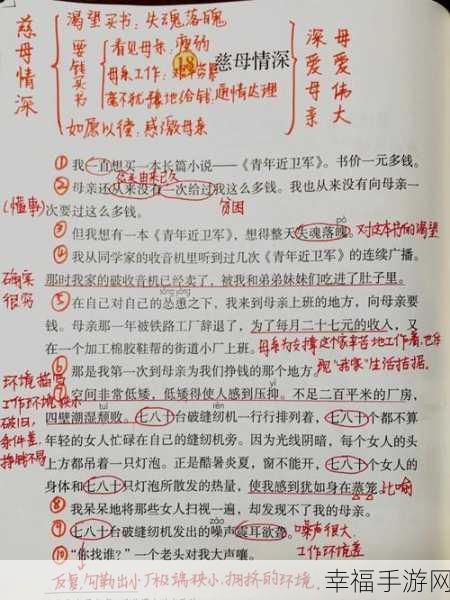 慈母情深
渴望买书：失魂落魄
要钱买书
看见母亲：瘦弱
母亲工作：艰辛劳累
毫不犹豫地给钱，通情达理
如愿以偿：感激母亲
深爱母亲
母爱伟大
18 慈母情深
① 我一直想买一本长篇小说——《青年近卫军》。书价一元多钱。
② 母亲还从来没有一次给过我这么多钱。我也从来没有向母亲一
(懂事)
次要过这么多钱。
贫困
pò
③ 但我想有一本《青年近卫军》，想得整天失魂落魄。
对这本书的渴望
④ 我从同学家的收音机里听到过几次《青年近卫军》的连续广播。
确实很穷
那时我家的破收音机已经卖了，被我和弟弟妹妹们吃进了肚子里。
sǒng yǒng
⑤ 在自己对自己的怂恿之下，我来到母亲上班的地方，向母亲要
钱。母亲那一年被铁路工厂辞退了，为了每月二十七元的收入，又
在一个加工棉胶鞋帮的街道小厂上班。
母亲为支撑这个家辛苦地工作着，也体
现“我家”生活拮据。
⑥ 那是我第一次到母亲为我们挣钱的那个地方。
环境描写
yì
⑦ 空间非常低矮，低矮得使人感到压抑。不足二百平米的厂房，
工作环境狭小
破旧，
条件差，
挣钱不易
tuí
四壁潮湿颓败。七八十台破缝纫机一行行排列着，七八十个都不算
年轻的女人忙碌在自己的缝纫机旁。因为光线阴暗，每个女人的头
上方都吊着一只灯泡。正是酷暑炎夏，窗不能开，七八十个女人的
身体和七八十只灯泡所散发的热量，使我感到犹如身在蒸笼
比喻
⑧ 我呆呆地将那些女人扫视一遍，却发现不了我的母亲。
zào
⑨ 七八十台破缝纫机发出的噪声震耳欲聋。
噪声很大，
工作环境差
⑩ “你找谁？”一个老头对我大声嚷。
反复，勾勒出小厂极端狭小，拥挤的环境。
幸福手游网